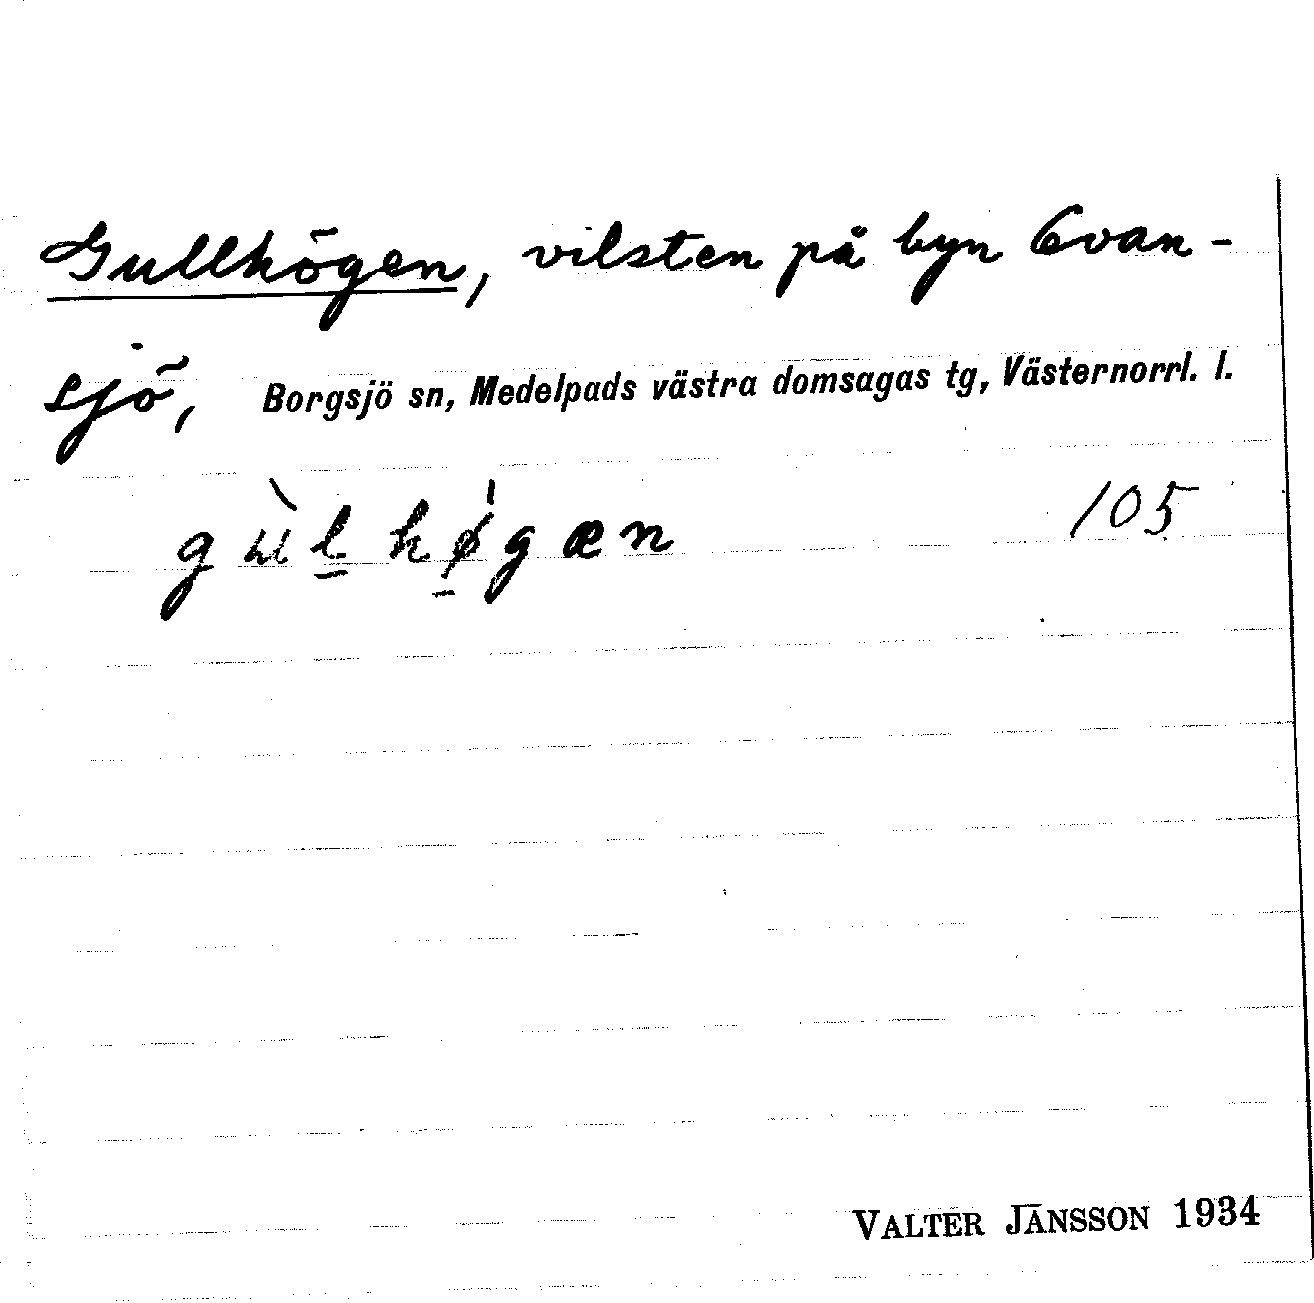 Gullhögen, vilsten på byn Evan-
sjö, Borgsjö sn, Medelpads västra domsagas tg, Västernorrl. l.
105
VALTER JÄNSSON 1934